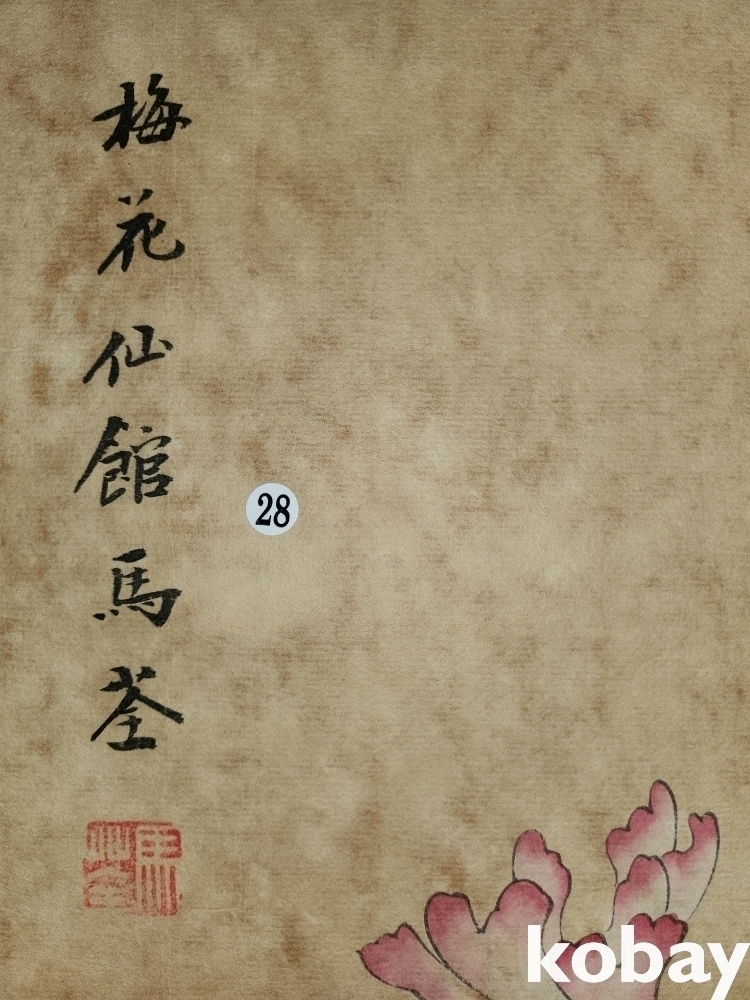 梅花仙館馬荃
28
kobay